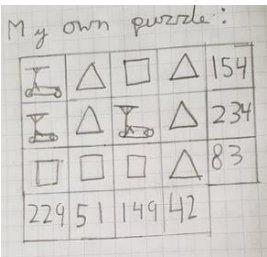 My own puzzle:
154
234
83
229 51 149 42